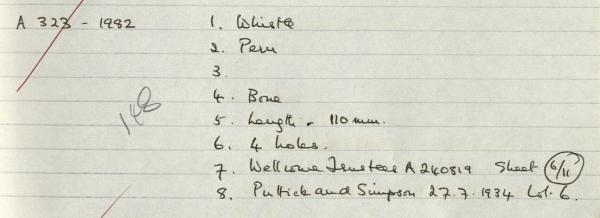 A 323 - 1982 1. Whistle
2. Peru
3.
4. Bone
5. Length - 110 mm.
6. 4 holes.
148
7. Wellcome Trustees A 240819 Sheet 6/11
8. Puttick and Simpson 27.7.1934 Lot. 6.